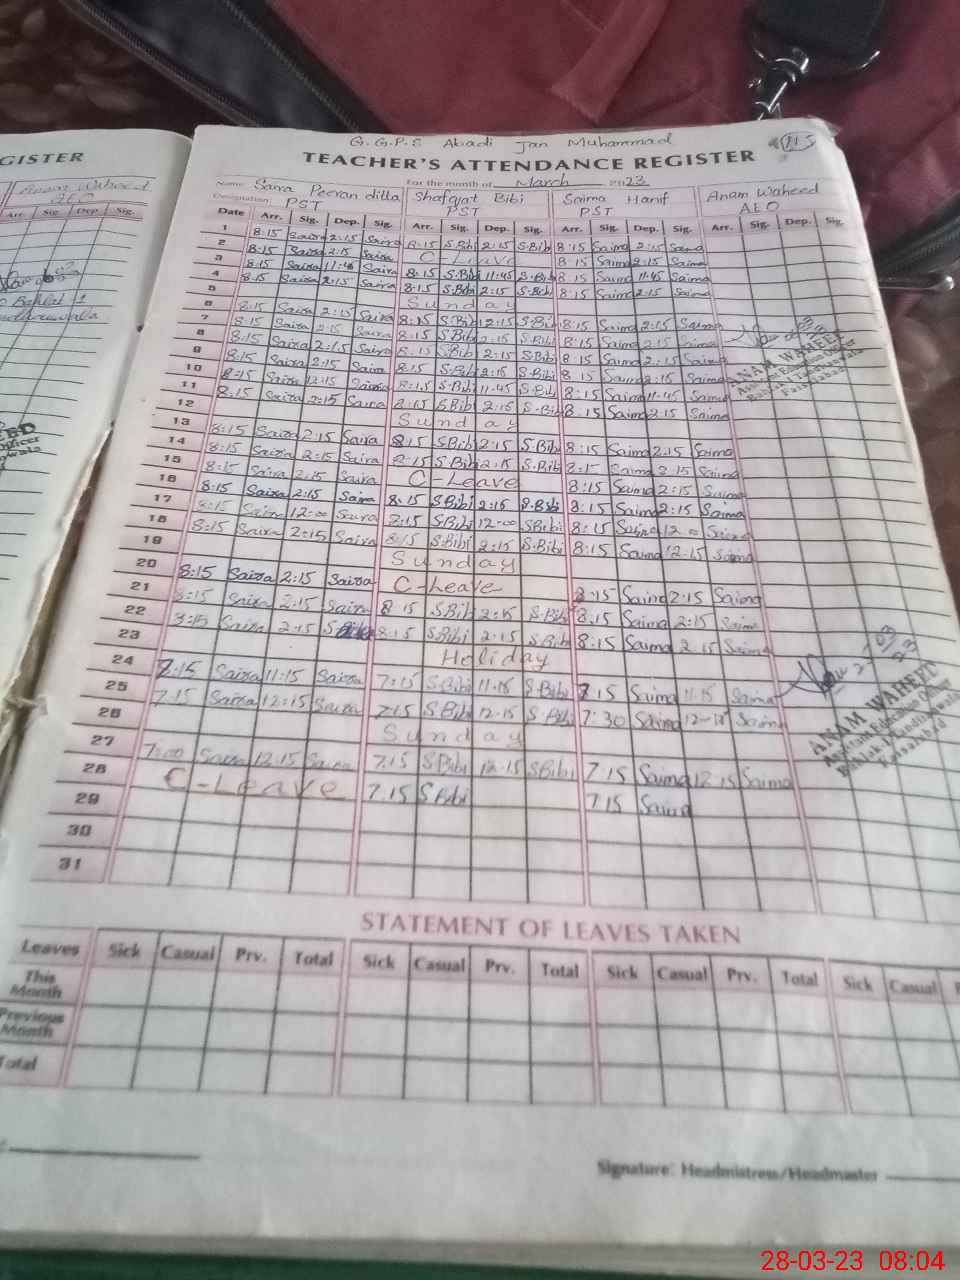 GISTER
Anam Waheed
AEO
Arr. Sig. Dep. Sig.
G.G.P.S Abadi Jan Muhammad
115
TEACHER'S ATTENDANCE REGISTER
Name: Saira Peeran ditta For the month of March 2023
Designation: PST
Shafqat Bibi
PST
Saima Hanif
PST
Anam Waheed
AEO
Date Arr. Sig. Dep. Sig. Arr. Sig. Dep. Sig. Arr. Sig. Dep. Sig. Arr. Sig. Dep. Sig.
1 8:15 Saira 2:15 Saira 8:15 S.Bibi 2:15 S.Bibi 8:15 Saima 2:15 Saima
2 8:15 Saira 2:15 Saira C-Leave 8:15 Saima 2:15 Saima
3 8:15 Saira 11:45 Saira 8:15 S.Bibi 11:45 S.Bibi 8:15 Saima 11:45 Saima
4 8:15 Saira 2:15 Saira 8:15 S.Bibi 2:15 S.Bibi 8:15 Saima 2:15 Saima
5 Sunday
6 8:15 Saira 2:15 Saira 8:15 S.Bibi 2:15 S.Bibi 8:15 Saima 2:15 Saima
7 8:15 Saira 2:15 Saira 8:15 S.Bibi 2:15 S.Bibi 8:15 Saima 2:15 Saima
8 8:15 Saira 2:15 Saira 8:15 S.Bibi 2:15 S.Bibi 8:15 Saima 2:15 Saima
9 8:15 Saira 2:15 Saira 8:15 S.Bibi 2:15 S.Bibi 8:15 Saima 2:15 Saima
10 8:15 Saira Saira 8:15 S.Bibi 11:45 S.Bibi 8:15 Saima 11:45 Saima
11 8:15 Saira 2:15 Saira 8:15 S.Bibi 2:15 S.Bibi 8:15 Saima 2:15 Saima
12 Sunday
13 8:15 Saira 2:15 Saira 8:15 S.Bibi 2:15 S.Bibi 8:15 Saima 2:15 Saima
14 8:15 Saira 2:15 Saira 8:15 S.Bibi 2:15 S.Bibi 8:15 Saima 2:15 Saima
15 8:15 Saira 2:15 Saira C-Leave 8:15 Saima 2:15 Saima
16 8:15 Saira 2:15 Saira 8:15 S.Bibi 2:15 S.Bibi 8:15 Saima 2:15 Saima
17 8:15 Saira 12:00 Saira 8:15 S.Bibi 12:00 S.Bibi 8:15 Saima 12:00 Saima
18 8:15 Saira 2:15 Saira 8:15 S.Bibi 2:15 S.Bibi 8:15 Saima 12:15 Saima
19 Sunday
20 8:15 Saira 2:15 Saira C-Leave 8:15 Saima 2:15 Saima
21 8:15 Saira 2:15 Saira 8:15 S.Bibi 2:15 S.Bibi 8:15 Saima 2:15 Saima
22 8:15 Saira 2:15 8:15 S.Bibi 2:15 S.Bibi 8:15 Saima 2:15 Saima
23 Holiday
24 7:15 Saira 11:15 Saira 7:15 S.Bibi 11:15 S.Bibi 7:15 Saima 11:15 Saima
25 7:15 Saira 12:15 Saira 7:15 S.Bibi 12:15 S.Bibi 7:30 Saima 12:15 Saima
26 Sunday
27 7:00 Saira 12:15 Saira 7:15 S.Bibi 12:15 S.Bibi 7:15 Saima 12:15 Saima
28 C-Leave 7:15 S.Bibi 7:15 Saima
29
30
31
ANAM WAHEED
Assistant Education Officer
Faisalabad
ANAM WAHEED
Assistant Education Officer
Faisalabad
STATEMENT OF LEAVES TAKEN
Leaves Sick Casual Prv. Total Sick Casual Prv. Total Sick Casual Prv. Total Sick Casual
This Month
Previous Month
Total
Signature: Headmistress/Headmaster
28-03-23 08:04